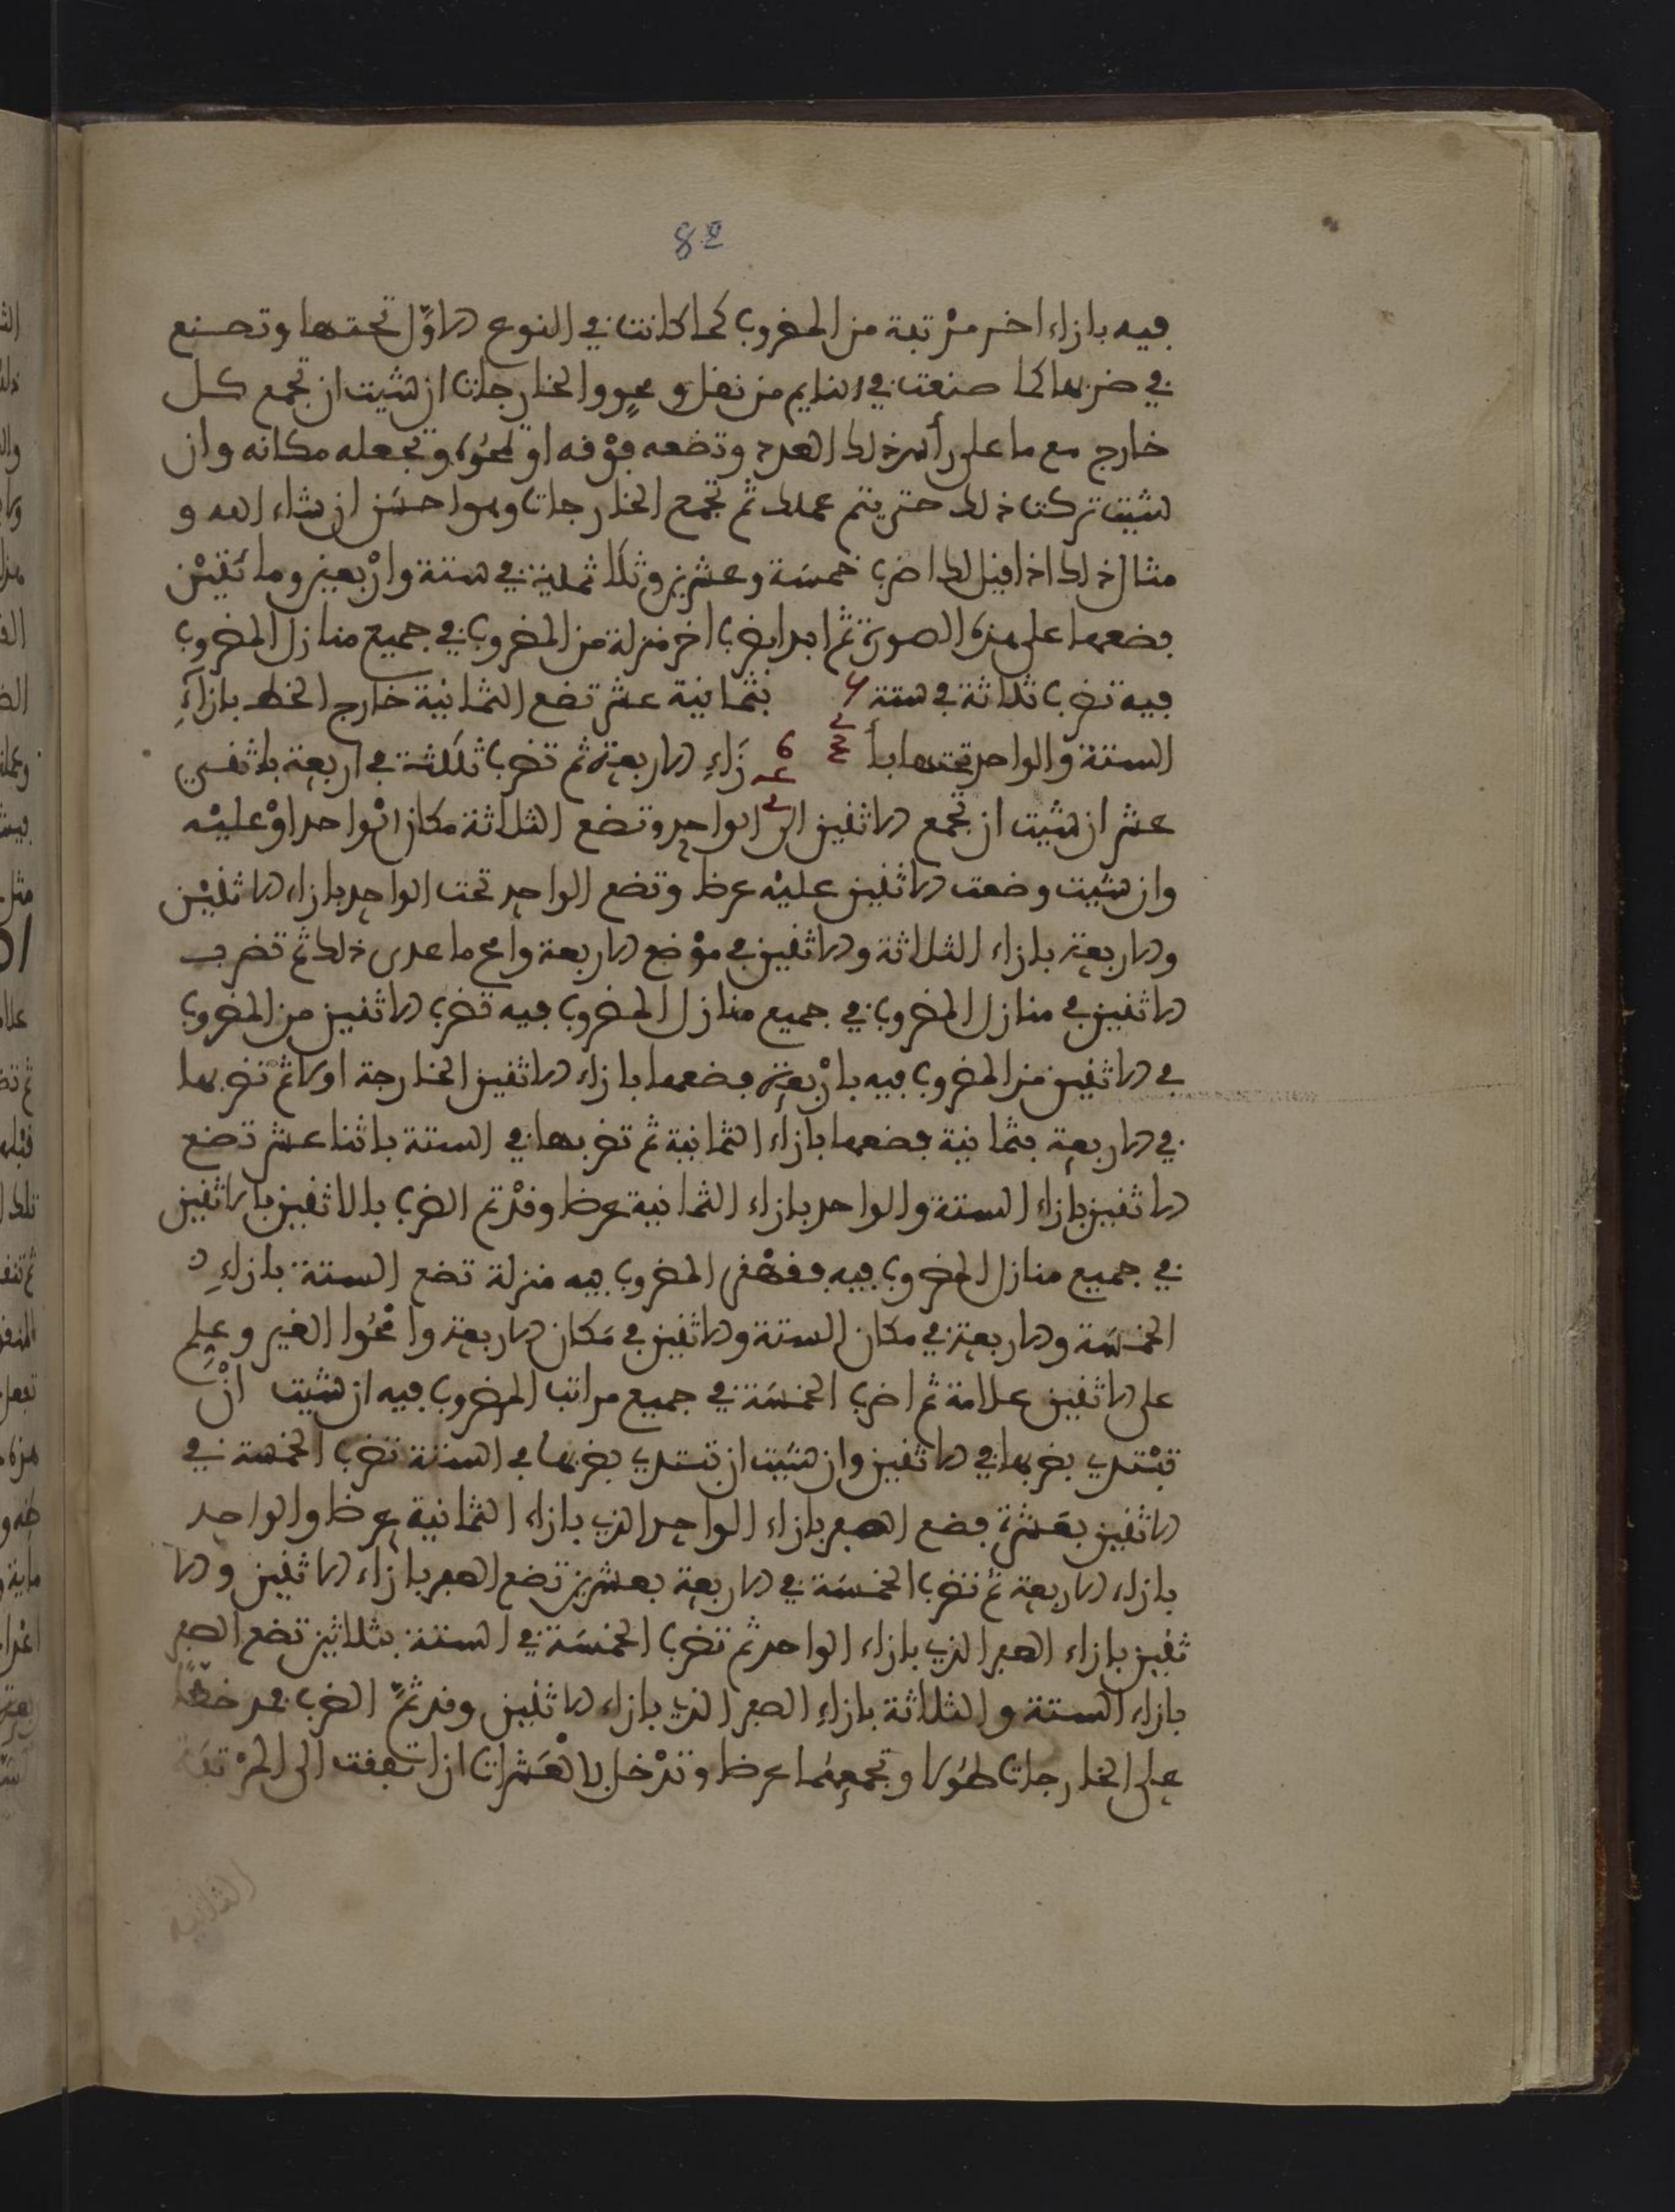 82
فيه بازاء اخر مرتبة من المضروب كما كانت في النوع الاول تحتها وتصنع
في ضربها كما صنعت في القايم من نقل ومحو والخارجات ان شيت ان تجمع كل
خارج مع ما على رأس ذلك العدد وتضعه فوقه او تمحوه وتجعله مكانه وان
شيت تركت ذلك حتى يتم عملك ثم تجمع الخارجات وهو احسن ان شاء الله و
مثال ذلك اذا قيل لك اضرب خمسة وعشرين وثلاثماية في ستة واربعين ومائتين
فضعها على هذه الصورة ثم ابدا بضرب اخر منزلة من المضروب في جميع منازل المضروب
فيه تضرب ثلاثة في ستة بثمانية عشر تضع الثمانية خارج الخط بازاء
الستة والواحد تحتها بأ زاء الاربعة ثم تضرب ثلاثة في اربعة باثني
عشر ان شيت ان تجمع الاثنين الى الواحد وتضع الثلاثة مكان الواحد او عليه
وان شيت وضعت الاثنين عليه عرضا وتضع الواحد تحت الواحد بازاء الاثنين
والاربعة بازاء الثلاثة والاثنين في موضع الاربعة وامح ما عدى ذلك ثم تضرب
الاثنين في منازل المضروب في جميع منازل المضروب فيه تضرب الاثنين من المضروب
في الاثنين من المضروب فيه باربعة فضعها بازاء الاثنين الخارجة اولا ثم تضربها
في الاربعة بثمانية فضعها بازاء الثمانية ثم تضربها في الستة باثنا عشر تضع
الاثنين بازاء الستة والواحد بازاء الثمانية عرضا وقد تم الضرب بالاثنين
في جميع منازل المضروب فيه فقهقر المضروب فيه منزلة تضع الستة بازاء
الخمسة والاربعة في مكان الستة والاثنين في مكان الاربعة وامحوا الغير وعلم
على الاثنين علامة ثم اضرب الخمسة في جميع مراتب المضروب فيه ان شيت ان
تبتدي بضربها في الاثنين وان شيت ان تبتدي بضربها في الستة تضرب الخمسة في
الاثنين بعشرة فضع الصفر بازاء الواحد الذي بازاء الثمانية عرضا والواحد
بازاء الاربعة ثم تضرب الخمسة في الاربعة بعشرين تضع الصفر بازاء الاثنين والا
ثنين بازاء الصفر الذي بازاء الواحد ثم تضرب الخمسة في الستة بثلاثين تضع الصفر
بازاء الستة والثلاثة بازاء الصفر الذي بازاء الاثنين وقد تم الضرب فمد خطا
على الخارجات طولا وتجمعها عرضا وتدخل العشرات ان اتفقت الى المرتبة
الثانية